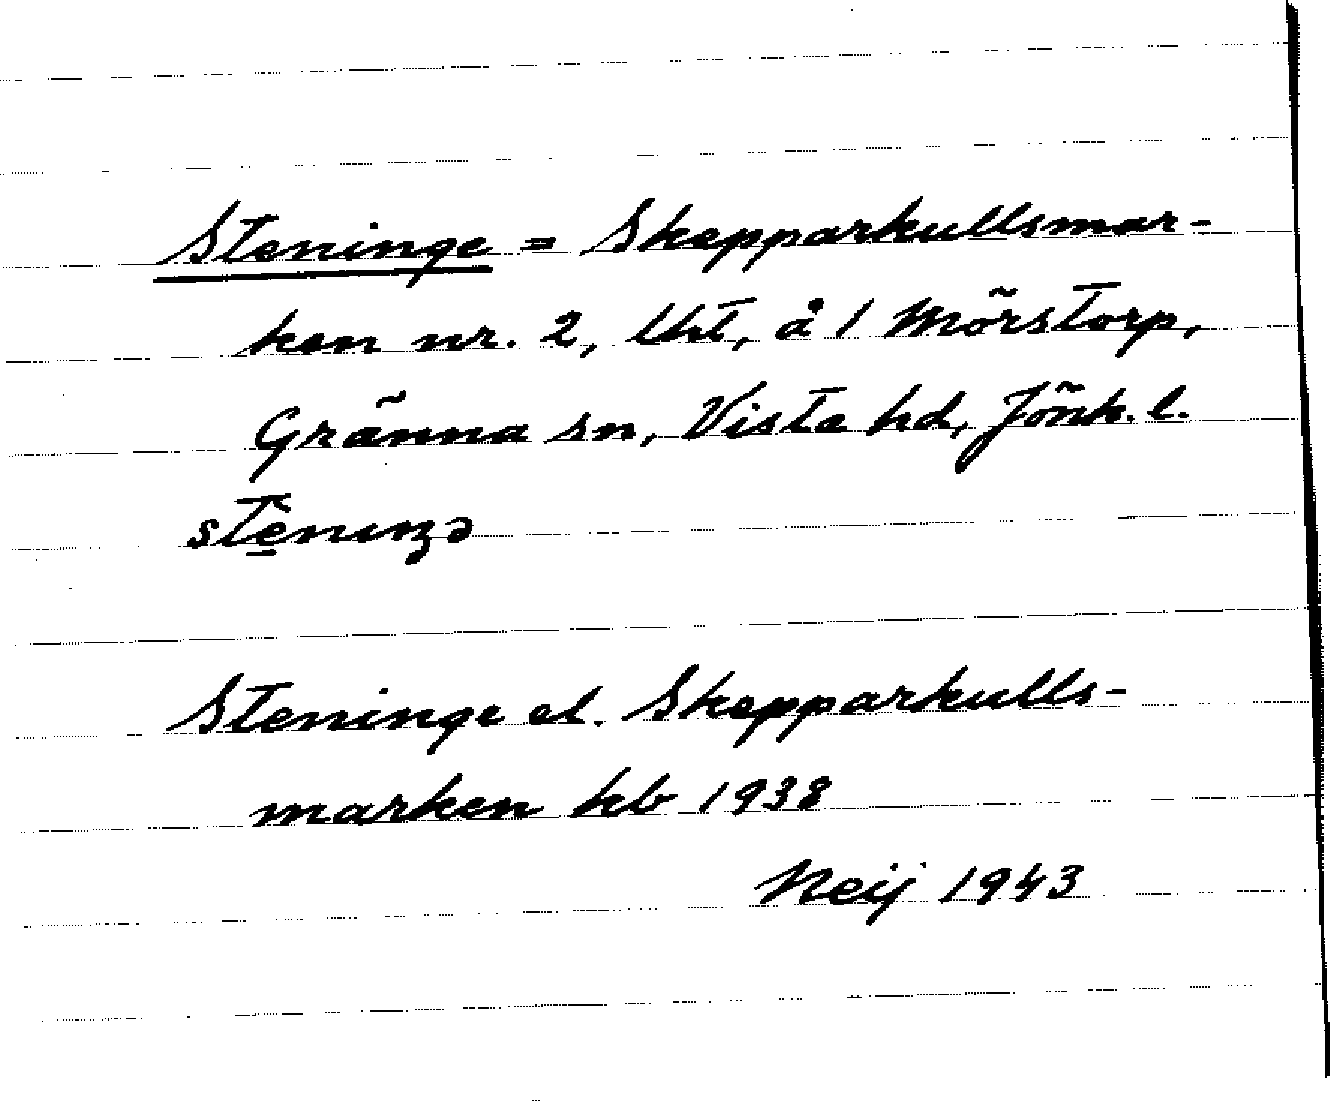 Steninge = Skepparkullsmar-
ken nr. 2, lht, å 1 Mörstorp,
Gränna sn, Vista hd, Jönk. l.
stèniŋə
Steninge el. Skepparkulls-
marken hb 1938
Neij 1943